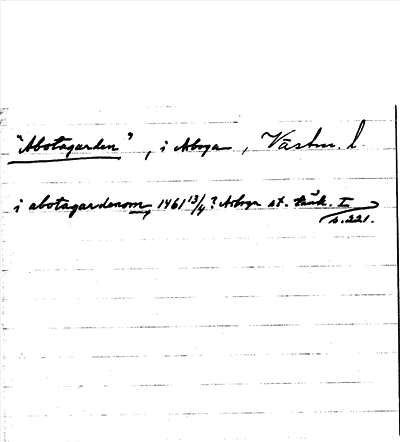 "Abotagarden", i Arboga, Västm. l.
i abotagardenom, 1461 13/4? Arboga st. tänk. I
s. 221.